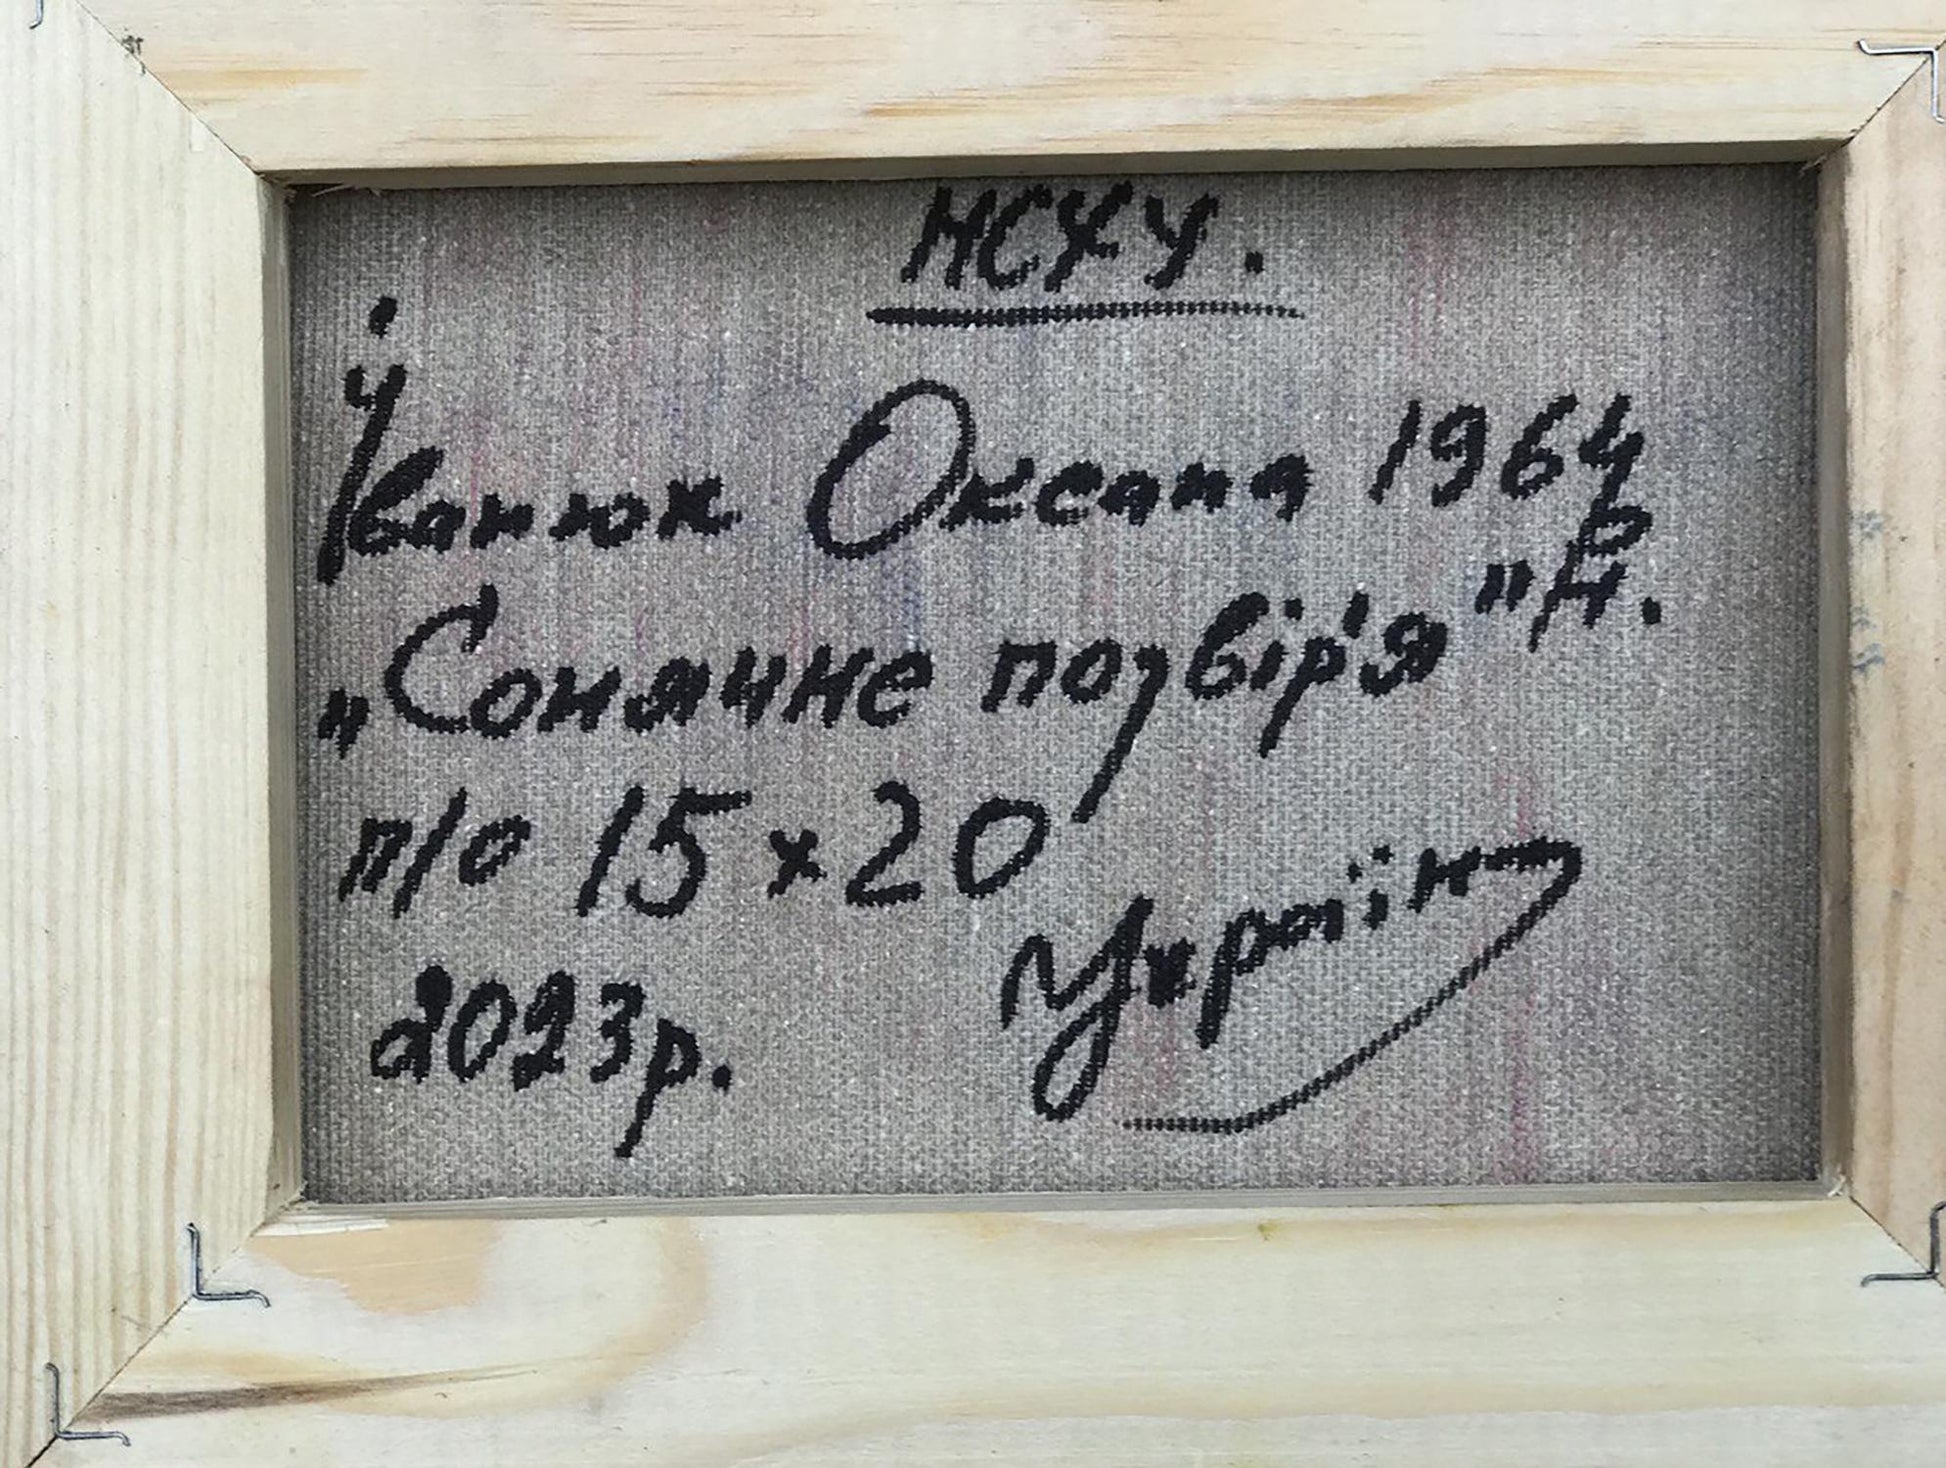 НСХУ.
Іванюк Оксана 1964
р.н.
„Сонячне подвір'я"
п/о 15 x 20
Україна
2023р.